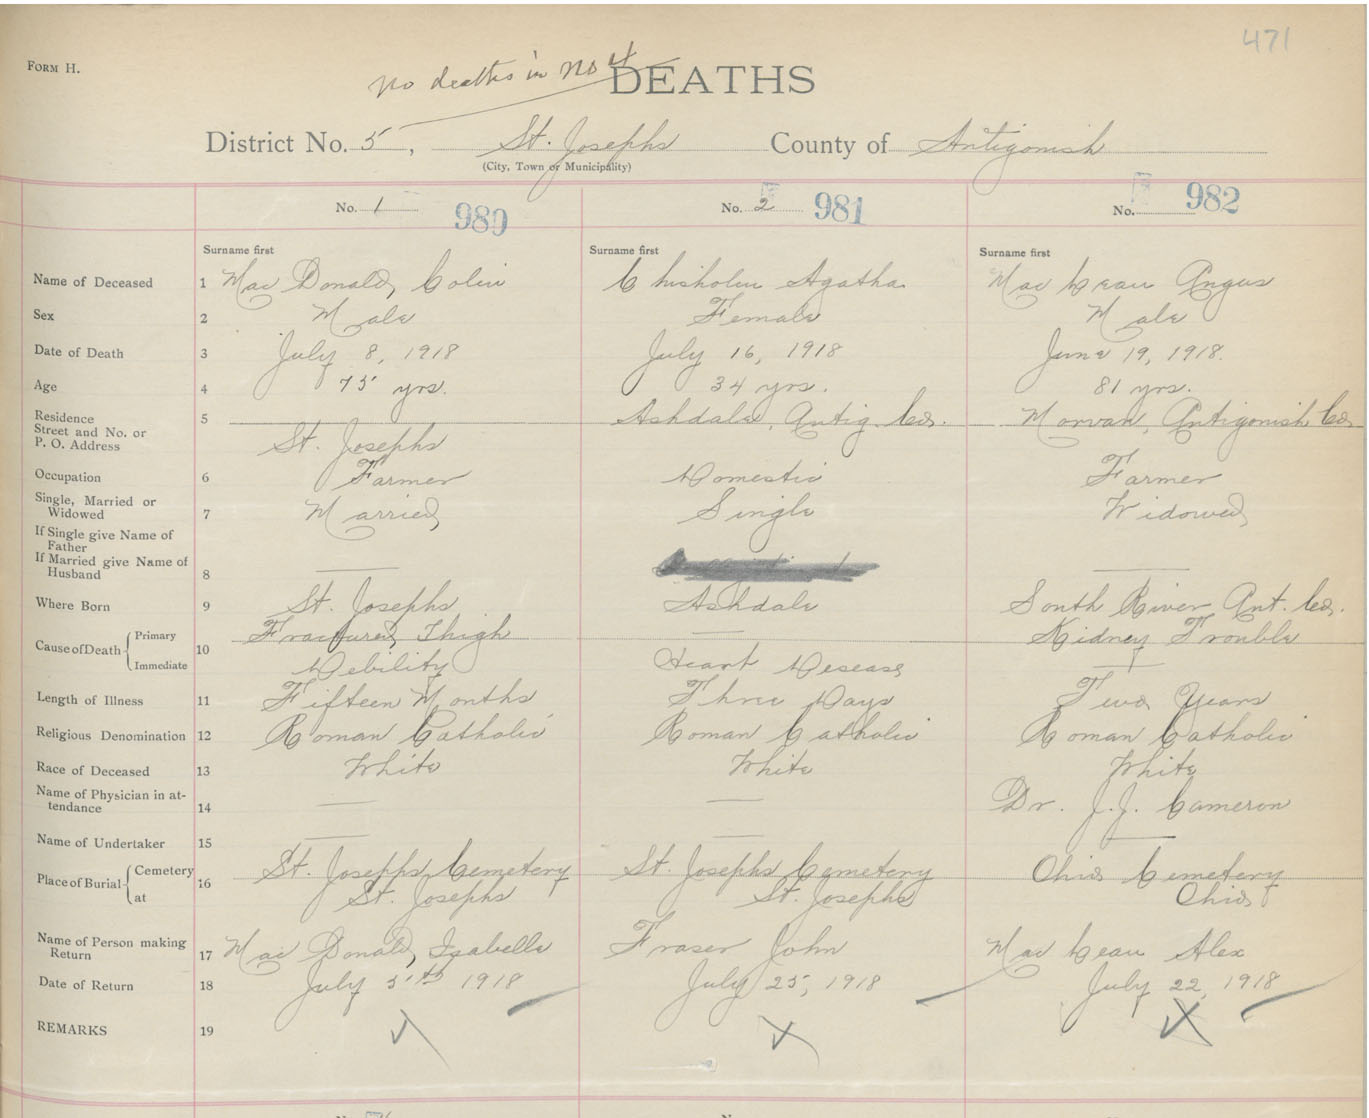 471
FORM H.
No deaths in No 4
DEATHS
District No. 5, St. Josephs County of Antigonish
(City, Town or Municipality)
No. 1 980 No. 2 981 No. 982
Surname first Surname first Surname first
Name of Deceased 1 Mac Donald, Colin Chisholm Agatha Mac Lean Angus
Sex 2 Male Female Male
Date of Death 3 July 8, 1918 July 16, 1918 June 19, 1918.
Age 4 75 yrs. 34 yrs. 81 yrs.
Residence
Street and No. or
P. O. Address 5 St. Josephs Ashdale, Antig. Co. Morvan, Antigonish Co.
Occupation 6 Farmer Domestic Farmer
Single, Married or
Widowed 7 Married Single Widowed
If Single give Name of
Father
If Married give Name of
Husband 8 — —
Where Born 9 St. Josephs Ashdale South River, Ant. Co.
Cause of Death Primary 10 Fractured Thigh — Kidney Trouble
Immediate Debility Heart Disease —
Length of Illness 11 Fifteen Months Three Days Two Years
Religious Denomination 12 Roman Catholic Roman Catholic Roman Catholic
Race of Deceased 13 White White White
Name of Physician in at-
tendance 14 — — Dr. J. J. Cameron
Name of Undertaker 15 — — —
Place of Burial Cemetery 16 St. Josephs Cemetery St. Josephs Cemetery Ohio Cemetery
at St. Josephs St. Josephs Ohio
Name of Person making
Return 17 Mac Donald, Isabelle Fraser John Mac Lean Alex
Date of Return 18 July 5th 1918 July 25, 1918 July 22, 1918
REMARKS 19
No. No.